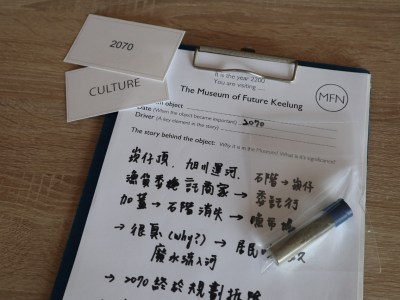 2070
CULTURE
It is the year 2200
You are visiting ....
The Museum of Future Keelung
MFN
object:
Date (When the object became important): 2070
Driver (A key element in the story)
The story behind the object: Why it is in the Museum? What is its significance?
崁仔頂、旭川運河、石階→崁仔
漁貨委託商家→委託行
加蓋→石階消失→
→很臭(why?)→居民
廢水流入河
→2070終於規劃拆除